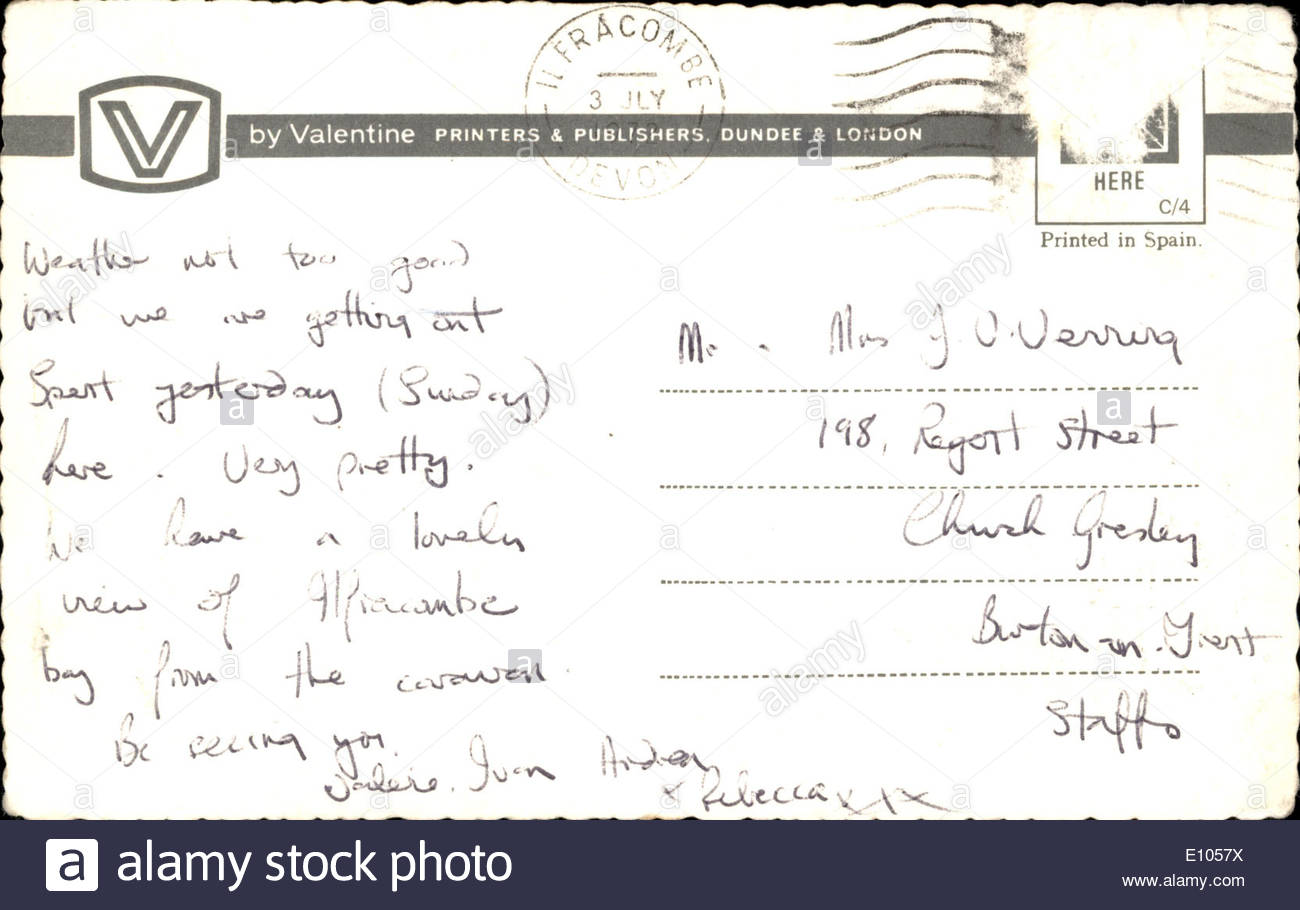 ILFRACOMBE
3 JLY
DEVON
V by Valentine PRINTERS & PUBLISHERS, DUNDEE & LONDON
HERE
C/4
Printed in Spain.
Weather not too good
but we are getting out
Spent yesterday (Sunday)
here. Very pretty.
We have a lovely
view of Ilfracombe
bay from the caravan.
Be seeing you.
Valerie. Ivan Andrea
& Rebecca xxx
Mr. Mrs J. V.
198, Street
Church Gresley
Burton-on-Trent
Staffs
a alamy stock photo
E1057X
www.alamy.com